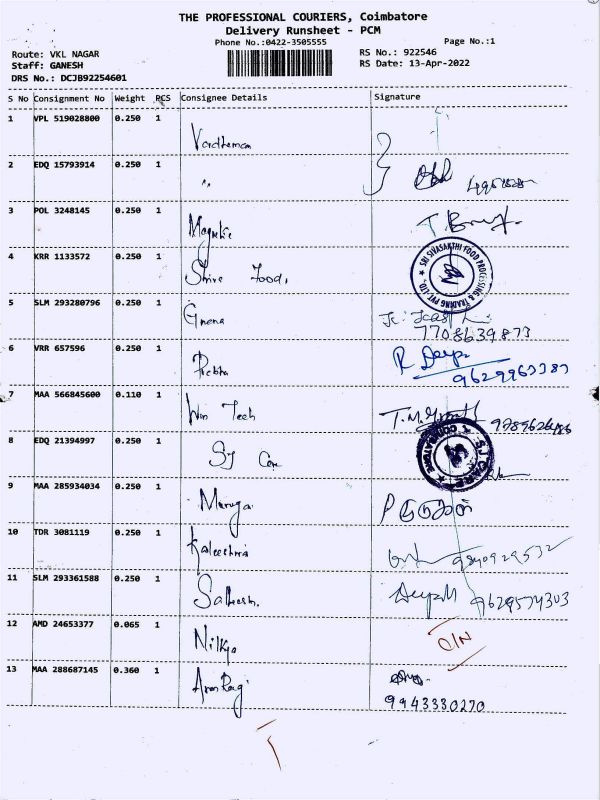 THE PROFESSIONAL COURIERS, Coimbatore
Delivery Runsheet - PCM
Phone No.:0422-3505555
Page No.:1
Route: VKL NAGAR
RS No.: 922546
Staff: GANESH
RS Date: 13-Apr-2022
DRS No.: DCJB92254601
S No Consignment No Weight PCS Consignee Details Signature
1 VPL 519028800 0.250 1 Vardhaman
2 EDQ 15793914 0.250 1 "
3 POL 3248145 0.250 1
4 KRR 1133572 0.250 1 Shiva Food,
SRI SIVASAKTHI FOOD PROCESSING & TRADING PVT. LTD.
5 SLM 293280796 0.250 1
7708639873
6 VRR 657596 0.250 1 Rekha R Deepa
9629963383
7 MAA 566845600 0.110 1 Win Tech
8 EDQ 21394997 0.250 1 SJ Care
SJ CARES COIMBATORE
9 MAA 285934034 0.250 1 Muruga P முருகன்
10 TDR 3081119 0.250 1 Kaleeshwari 9840929532
11 SLM 293361588 0.250 1 Satheesh. Deepak
12 AMD 24653377 0.065 1 Nithya O/N
13 MAA 288687145 0.360 1
9943330270